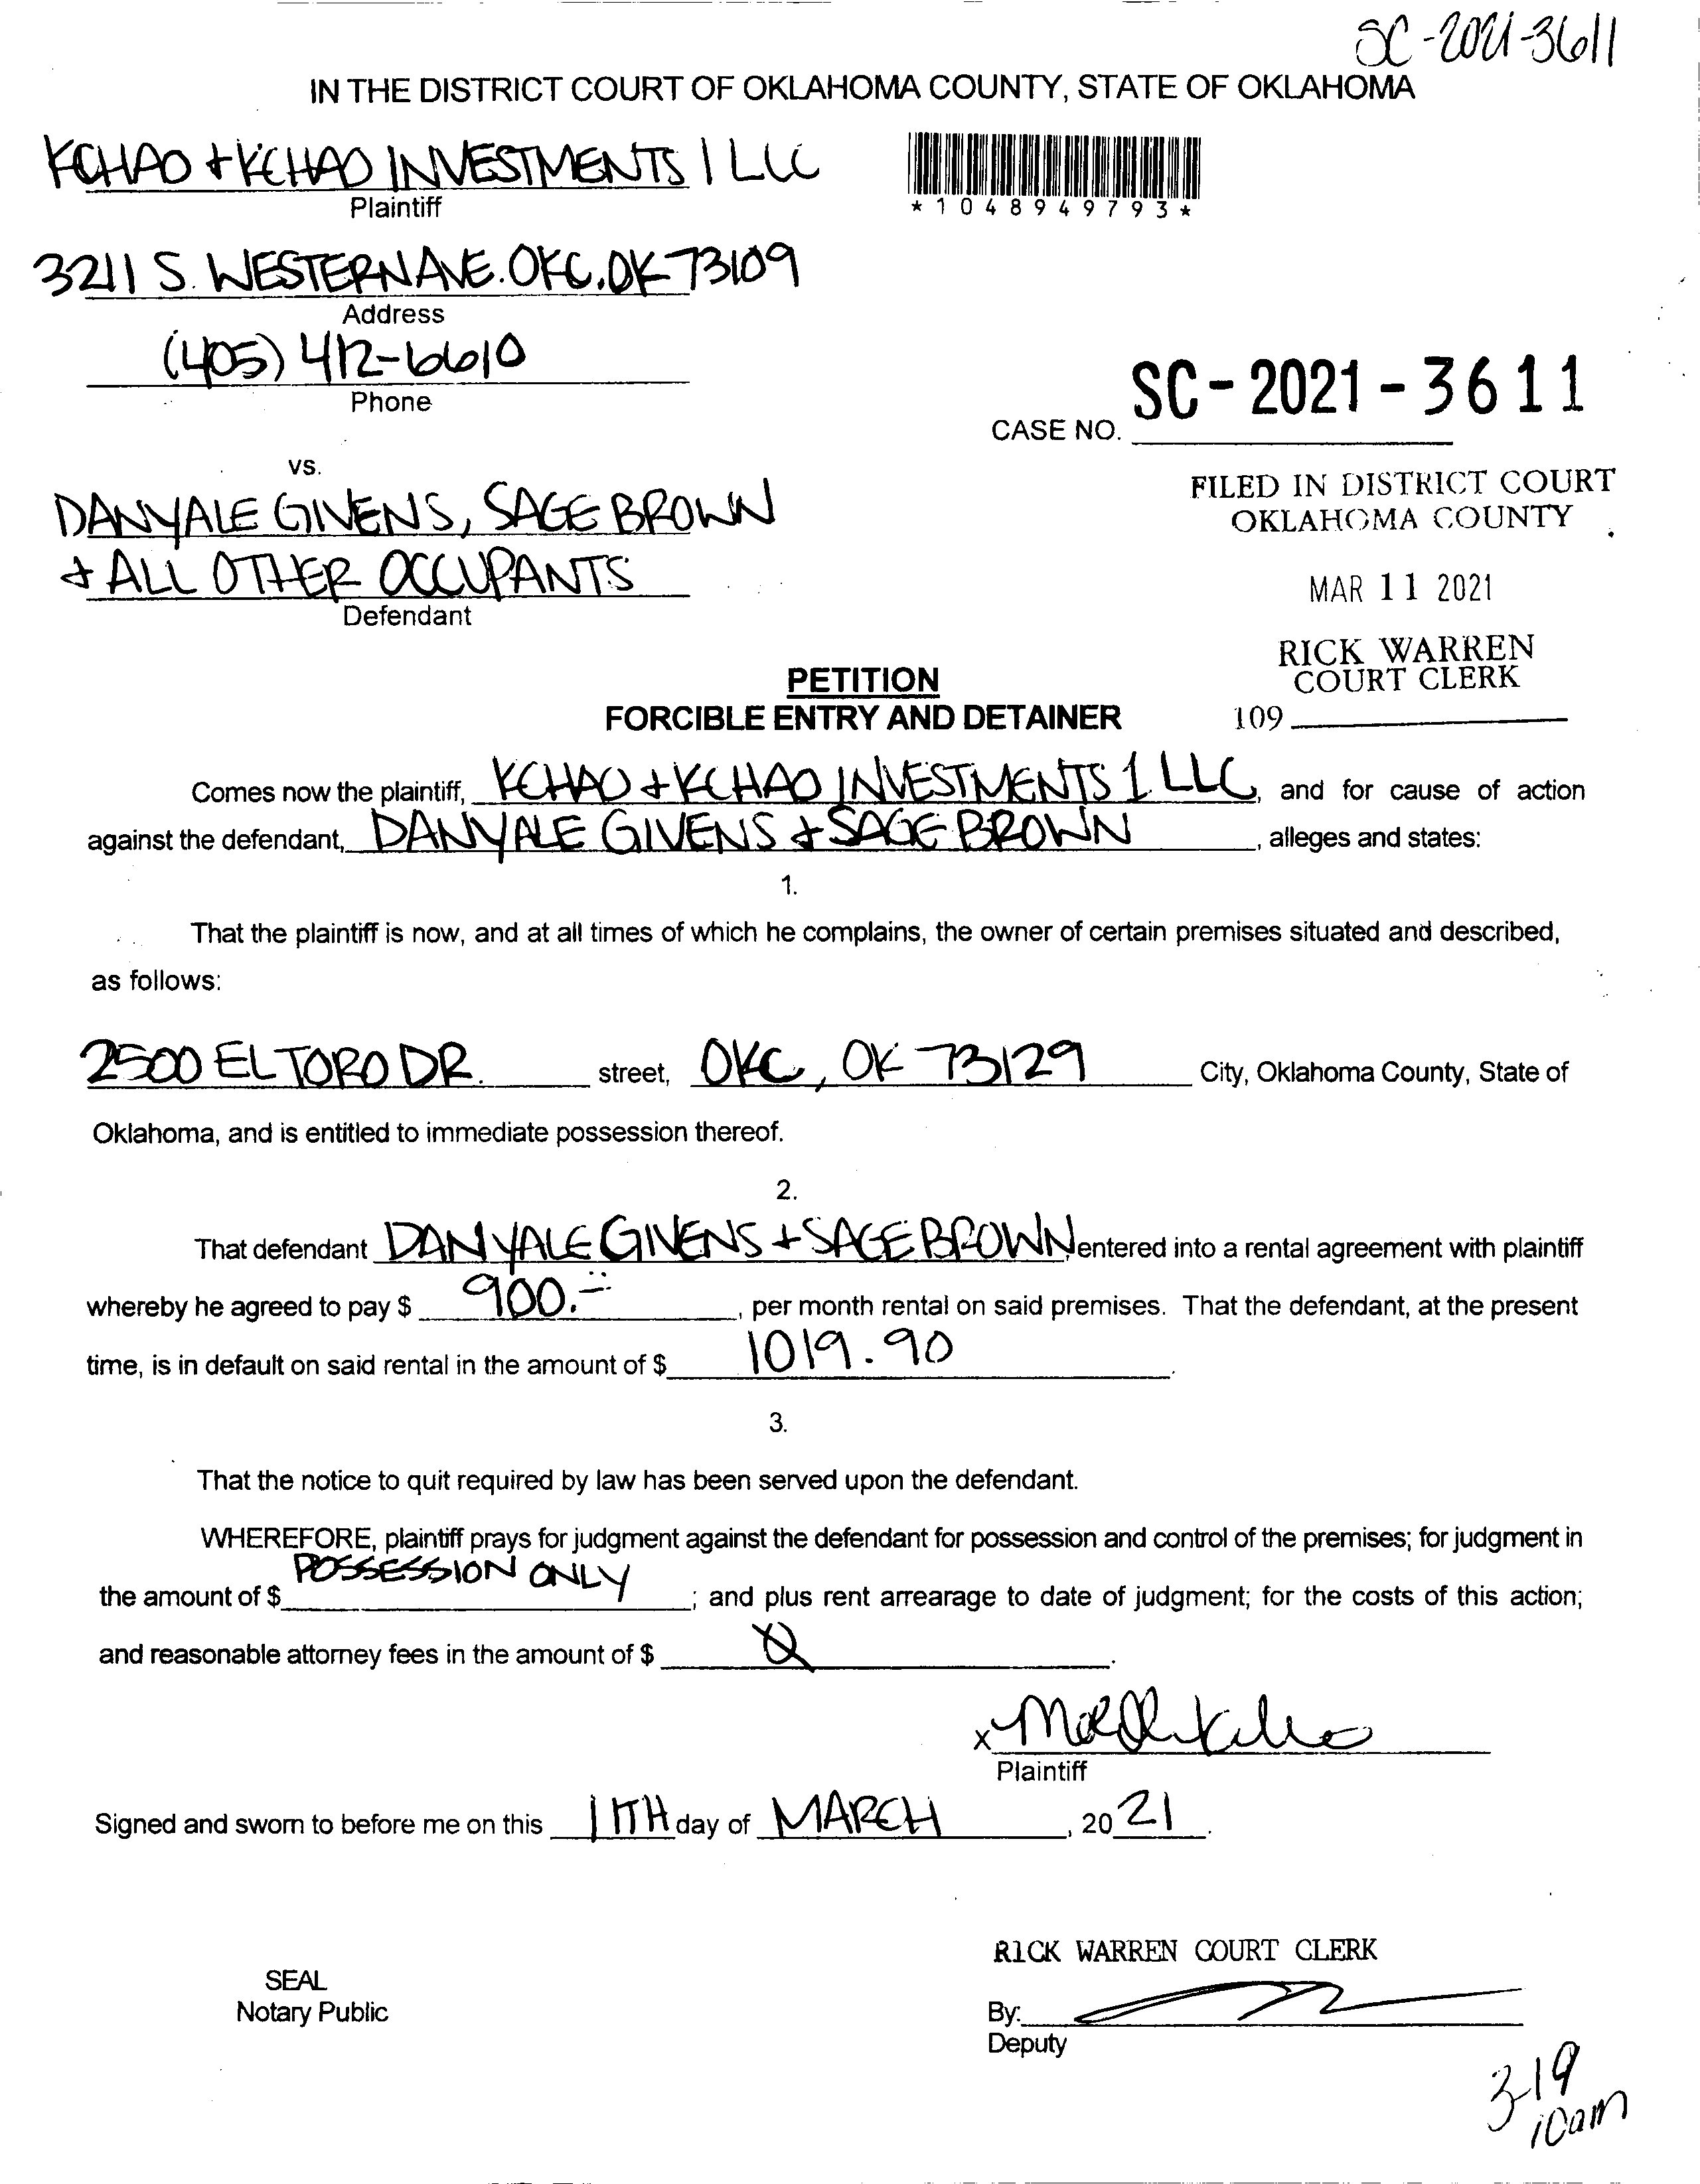 SC-2021-3611
IN THE DISTRICT COURT OF OKLAHOMA COUNTY, STATE OF OKLAHOMA
KCHAO + KCHAO INVESTMENTS 1 LLC
Plaintiff
*1048949793*
3211 S. WESTERN AVE. OKC, OK 73109
Address
(405) 412-6610
Phone
CASE NO. SC-2021-3611
vs.
DANYALE GIVENS, SAGE BROWN
+ ALL OTHER OCCUPANTS
Defendant
FILED IN DISTRICT COURT
OKLAHOMA COUNTY
MAR 11 2021
RICK WARREN
COURT CLERK
109
PETITION
FORCIBLE ENTRY AND DETAINER
Comes now the plaintiff, KCHAO + KCHAO INVESTMENTS 1 LLC, and for cause of action
against the defendant, DANYALE GIVENS + SAGE BROWN, alleges and states:
1.
That the plaintiff is now, and at all times of which he complains, the owner of certain premises situated and described,
as follows:
2500 EL TORO DR. street, OKC, OK 73129 City, Oklahoma County, State of
Oklahoma, and is entitled to immediate possession thereof.
2.
That defendant DANYALE GIVENS + SAGE BROWN, entered into a rental agreement with plaintiff
whereby he agreed to pay $ 900.--, per month rental on said premises. That the defendant, at the present
time, is in default on said rental in the amount of $ 1019.90.
3.
That the notice to quit required by law has been served upon the defendant.
WHEREFORE, plaintiff prays for judgment against the defendant for possession and control of the premises; for judgment in
the amount of $ POSSESSION ONLY; and plus rent arrearage to date of judgment; for the costs of this action;
and reasonable attorney fees in the amount of $ Ø.
X
Plaintiff
Signed and sworn to before me on this 11TH day of MARCH, 20 21.
RICK WARREN COURT CLERK
SEAL
Notary Public
By:
Deputy
3-19
10am